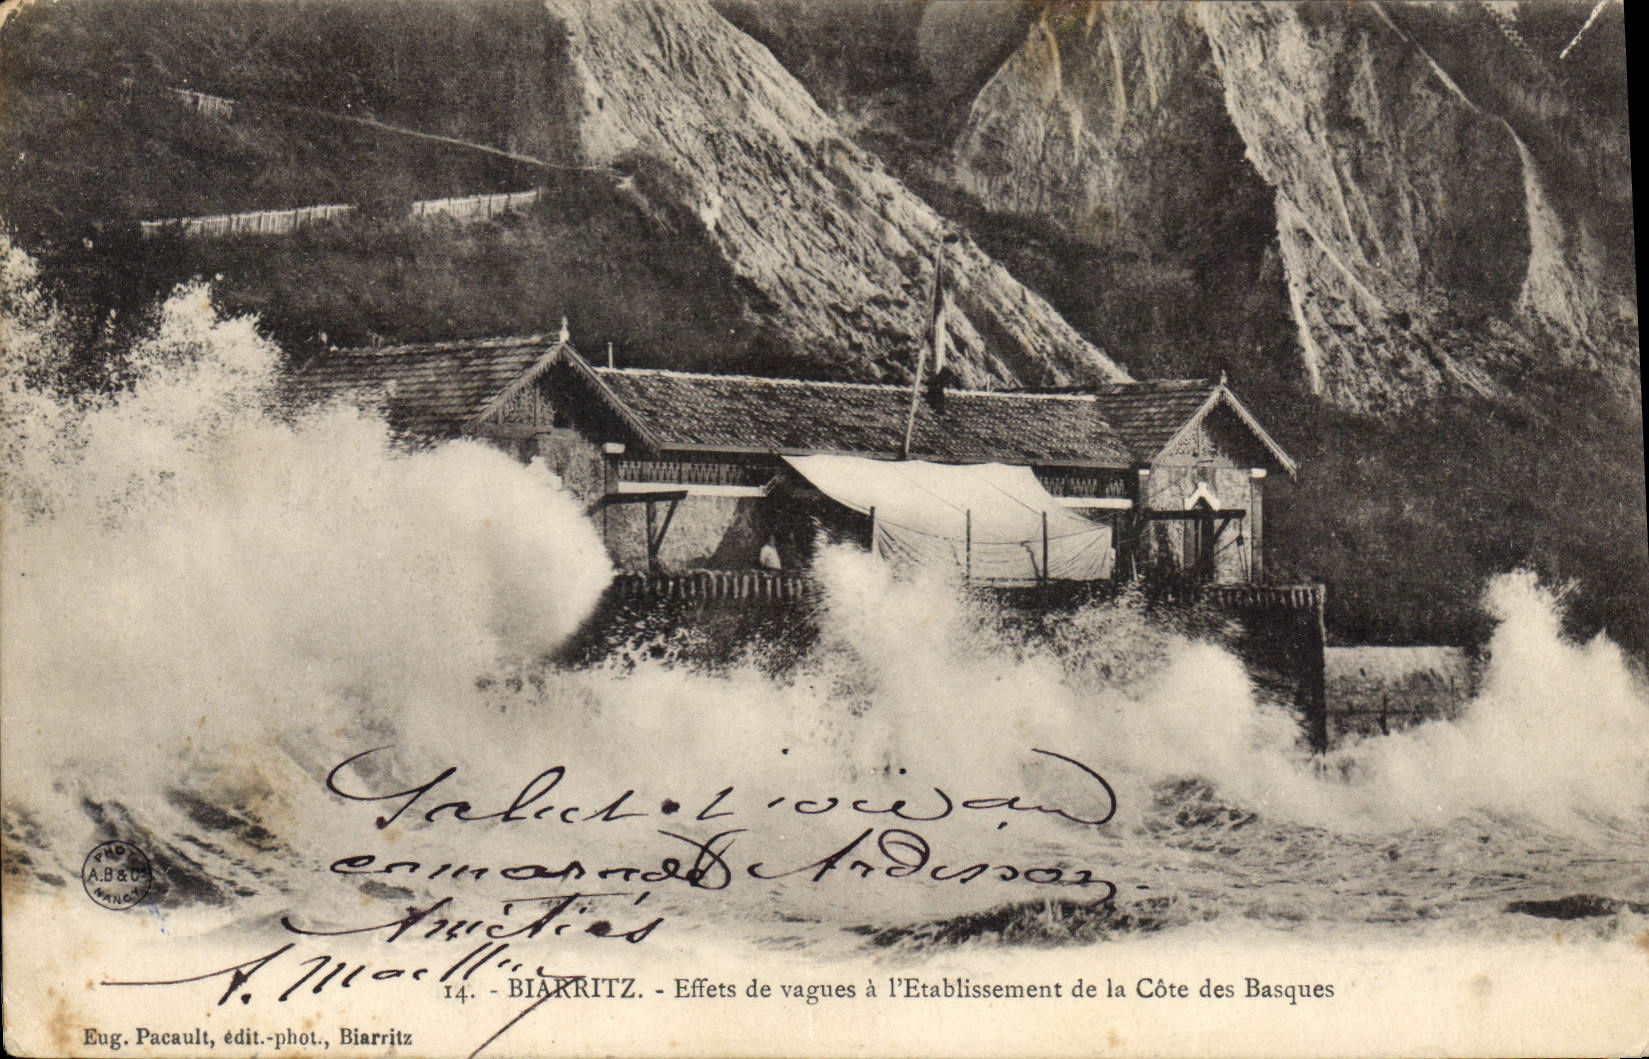 Salut et joie au
Amitiés
14. - BIARRITZ. - Effets de vagues à l'Etablissement de la Côte des Basques
Eug. Pacault, édit.-phot., Biarritz
PHOT
A.B & Cie
NANCY